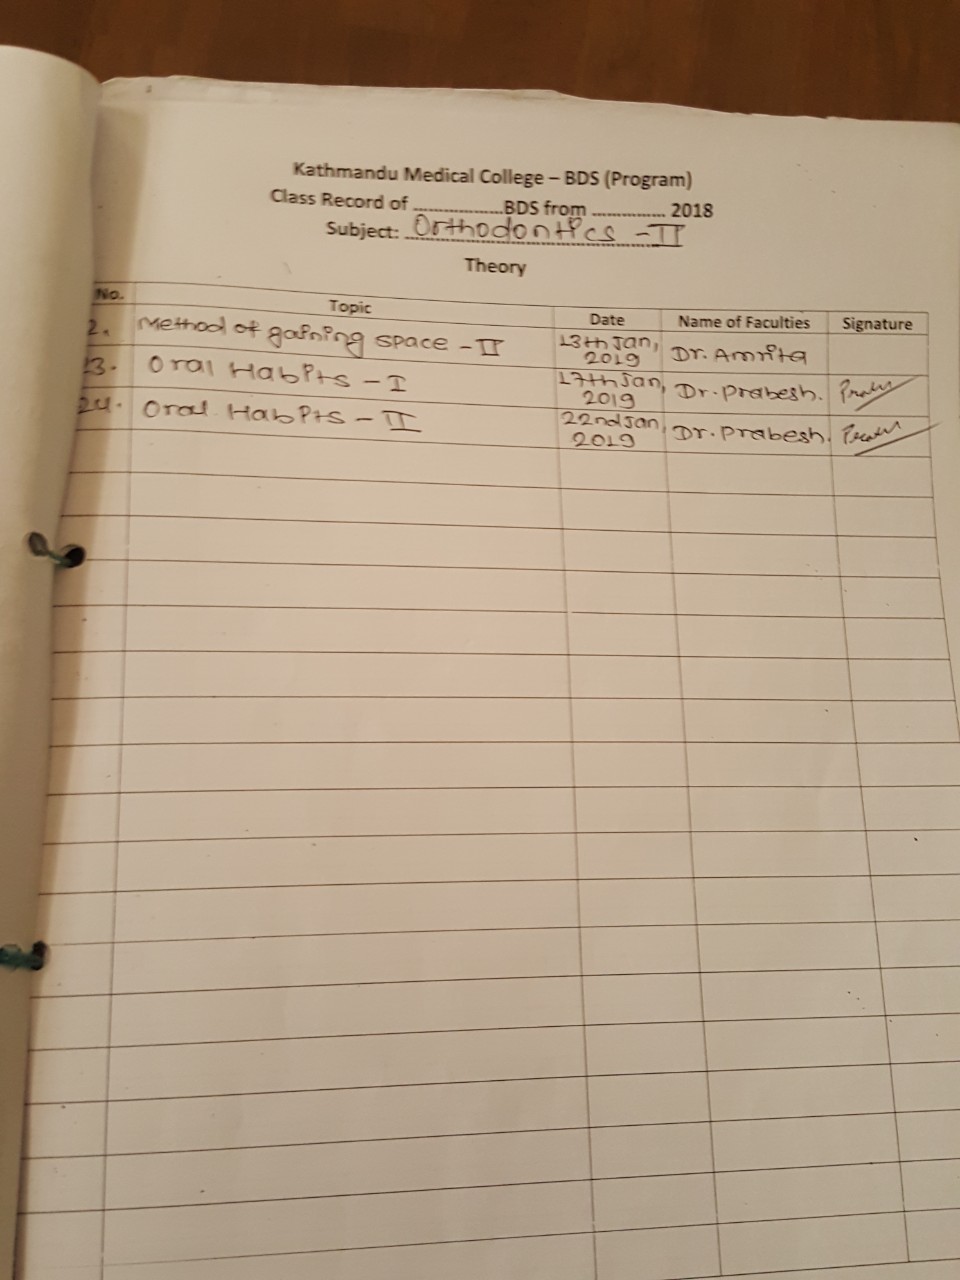 Kathmandu Medical College – BDS (Program)
Class Record of ..................BDS from ............... 2018
Subject: Orthodontics - II
Theory
No. Topic Date Name of Faculties Signature
2. Method of gaining space - II 13th Jan, 2019 Dr. Amrita
3. Oral Habits - I 17th Jan, 2019 Dr. Prabesh.
24. Oral Habits - II 22nd Jan, 2019 Dr. Prabesh.